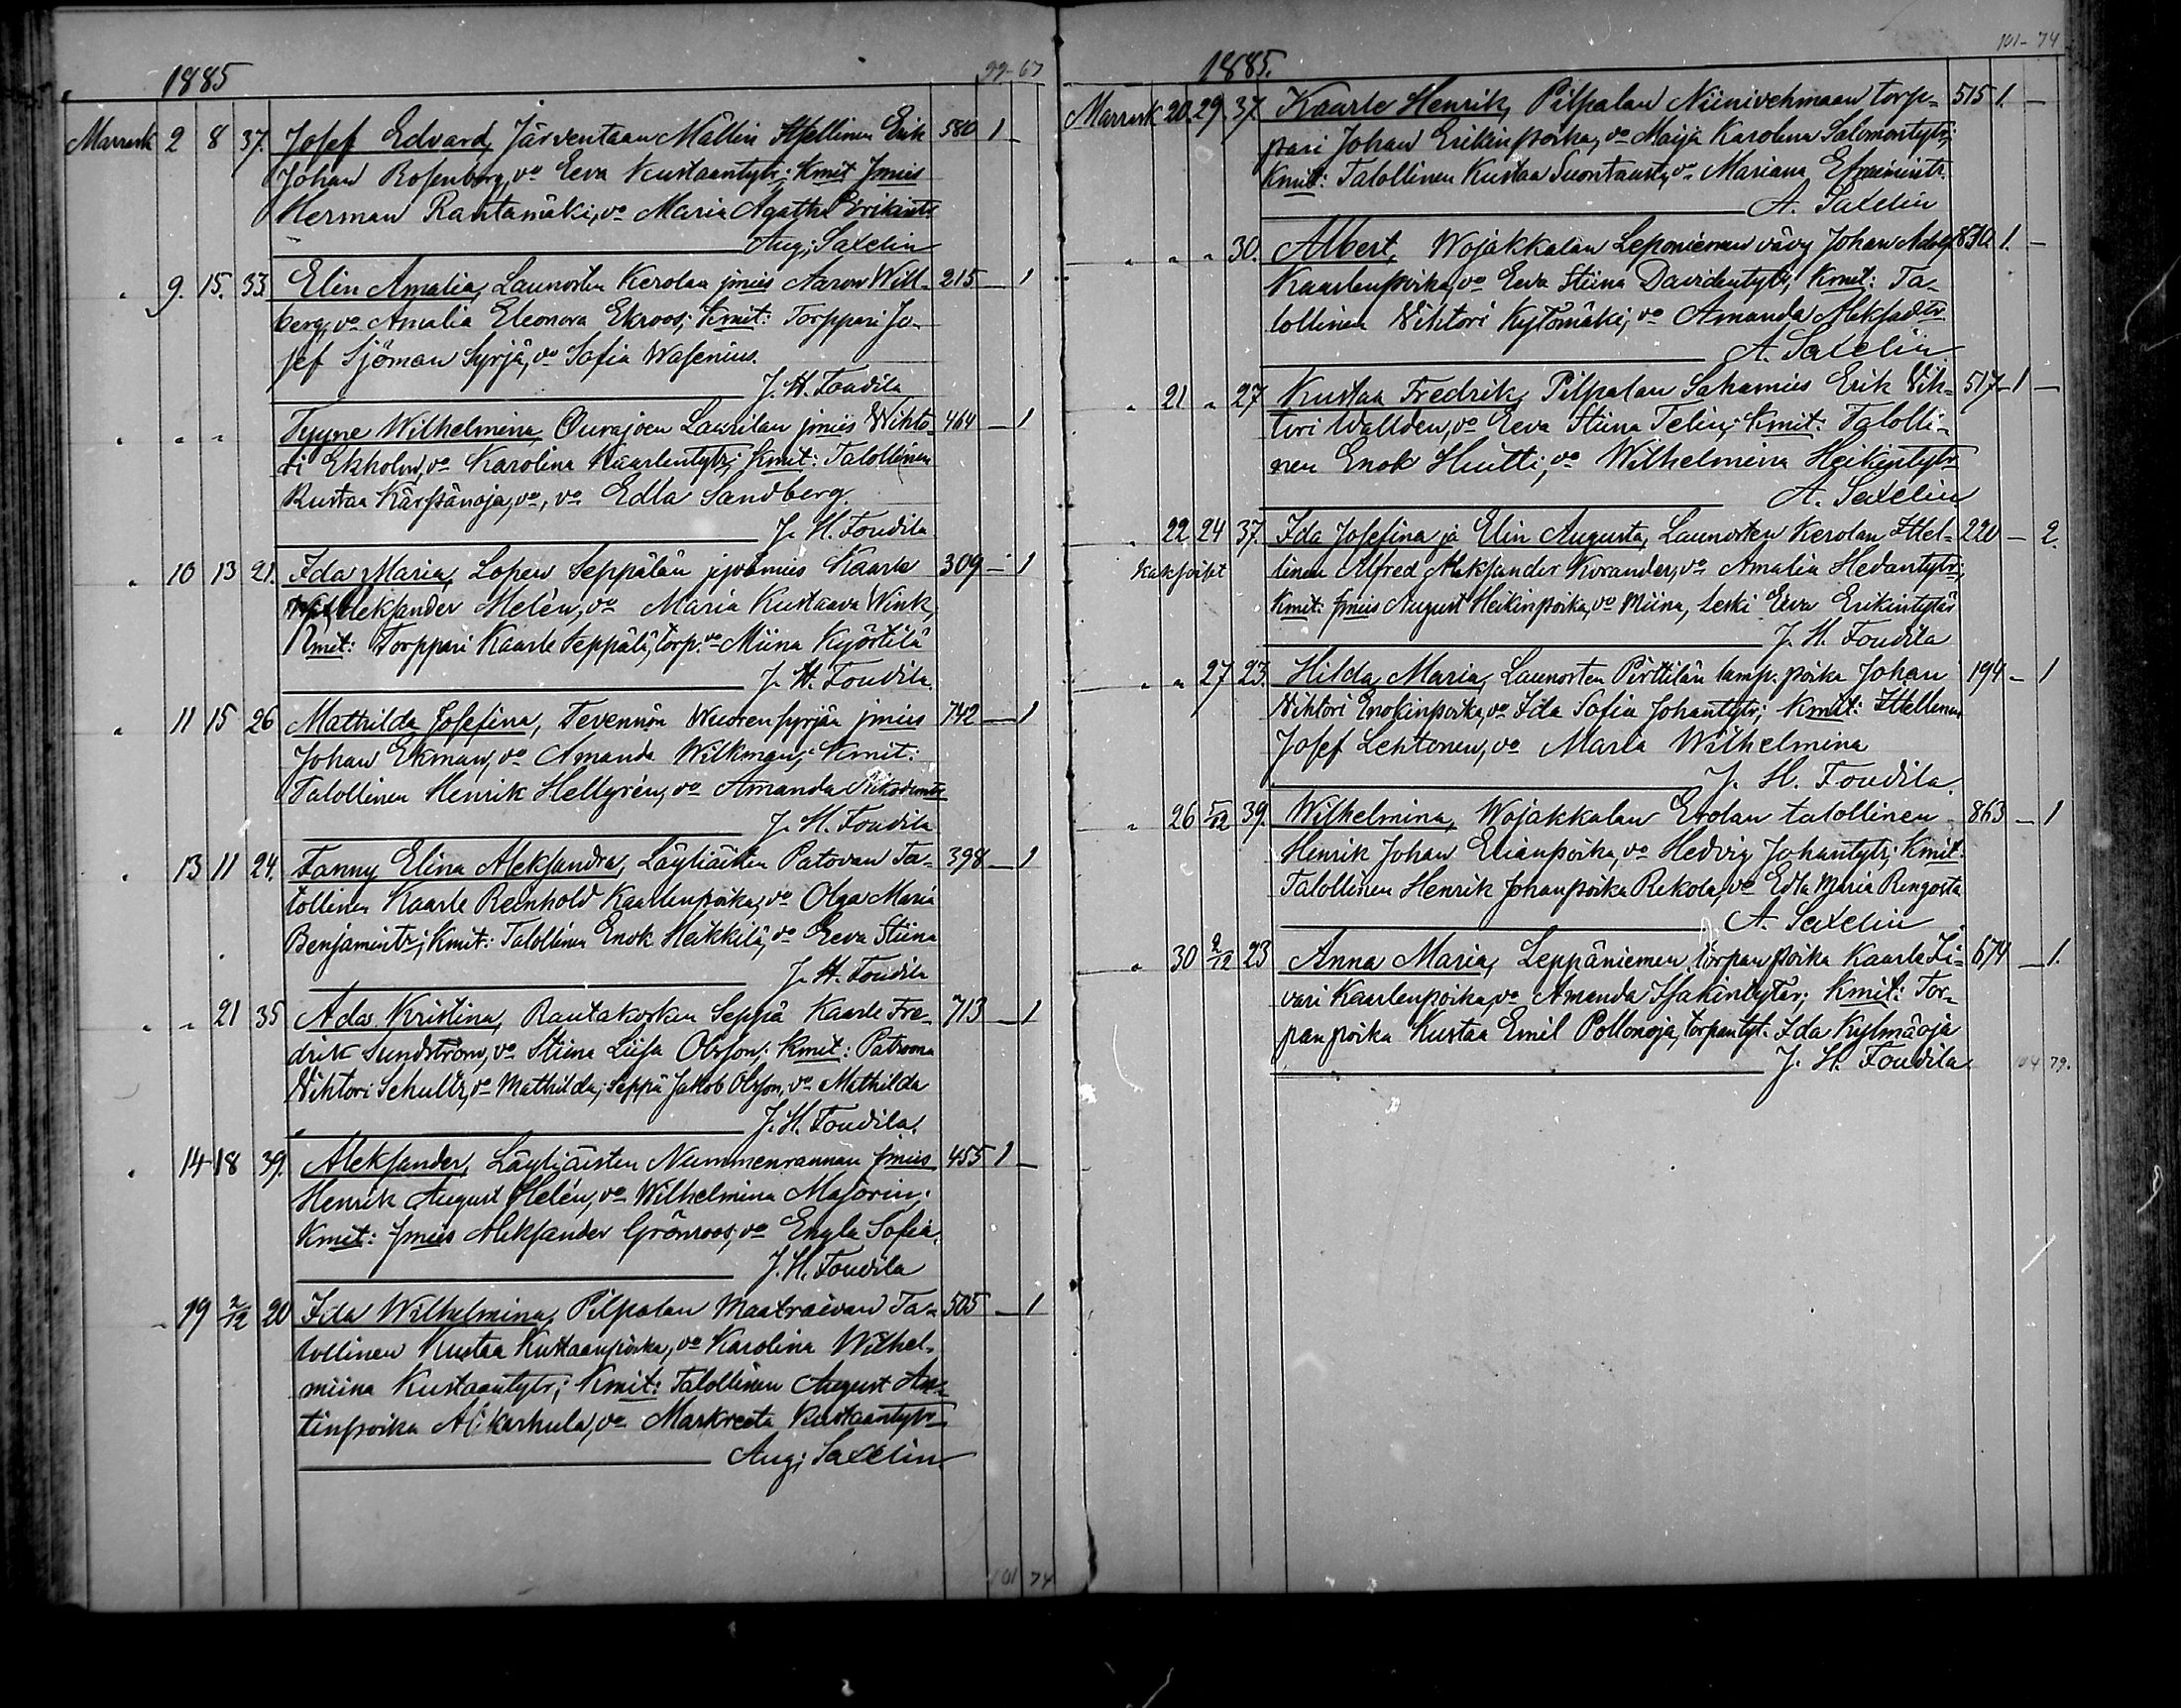 1885
99-67
Marrask 2 8 37. Josef Edvard, Järventaan Mällin Itsellinen Erik 580 1 -
Johan Rosenberg, vo Eeva Kustaantytr; Kmit Jmies
Herman Rautamäki, vo Maria Agatha Erikintr
Aug; Saxelin
" 9. 15. 33. Elin Amalia, Launosten Kerolan jmies Aaron Will- 215 - 1
berg, vo Amalia Eleonora Ekroos; Kmit: Torppari Jo-
sef Sjöman Syrjä, vo Sofia Wasenius.
J. H. Foudila
" " " Tyyne Wilhelmina, Ourajoen Laurilan jmies Wihto- 464 - 1
ri Ekholm, vo Karolina Kaarlentytr; Kmit: Talollinen
Kustaa Kärpänoja, vo, vo Edla Sandberg.
J. H. Foudila
" 10 13 21. Ida Maria, Lopen Seppälän jyvämies Kaarle 309 - 1
Aleksander Helén, vo Maria Kustaava Wink,
Kmit: Torppari Kaarle Seppälä, torp. vo Miina Kyörtilä
J. H. Foudila.
" 11 15 26 Mathilda Josefina, Tevennön Wuorensyrjän jmies 742 - 1
Johan Ekman, vo Amanda Wilkman; Kmit:
Talollinen Henrik Hellgrén, vo Amanda
J. H. Foudila
" 13 11 24. Fanny Elina Aleksandra, Läyliäisten Patovan Ta- 398 - 1
lollinen Kaarle Reinhold Kaarlenpoika, vo Olga Maria
Benjamintr; Kmit: Talollinen Enok Heikkilä, vo Eeva Stiina
J. H. Foudila
" " 21 35 Ada Kristina, Rautakosken Seppä Kaarle Fre- 713 - 1
drik Sundström, vo Stiina Liisa Olsson; Kmit: Patroona
Wihtori Schultz, vo Mathilda; Seppä Jakob Olsson, vo Mathilda
J. H. Foudila.
" 14 18 39. Aleksander, Läyliäisten Nummenrannan jmies 455 1 -
Henrik August Helén, vo Wilhelmina Majorin;
Kmit: Jmies Aleksander Grönroos, vo Engla Sofia.
J. H. Foudila
" 19 2/12 20 Ida Wilhelmina, Pilpalan Maatraivan Ta- 505 - 1
lollinen Kustaa Kustaanpoika, vo Karolina Wilhel-
miina Kustaantytr; Kmit: Talollinen August An-
tinpoika Ali Karhula, vo Markreeta Kustaantytr
Aug; Saxelin.
101 74
1885.
101-74
Marrask 20. 29. 37. Kaarle Henrik, Pilpalan Niinivehmaan torp- 515 1. -
pari Johan Erikinpoika, vo Maija Karolina Salomontytr;
Kmit: Talollinen Kustaa Suontausta, vo Mariana Efraimintr.
A. Saxelin
" " " 30. Albert, Wojakkalan Leponiemen vävy Johan Adolf 830 1. -
Kaarlenpoika, vo Eeva Stiina Davidintytr; Kmit: Ta-
lollinen Wihtori Kytömäki, vo Amanda Aleksadtr
A. Saxelin
" 21 " 27 Kustaa Fredrik, Pilpalan Sahamies Erik Wih- 517 1 -
tori Wallden, vo Eeva Stiina Telin; Kmit: Talolli-
nen Enok Huitti, vo Wilhelmina Heikintytr
A. Saxelin
" 22 24 37. Ida Josefina ja Elin Augusta, Launosten Kerolan Itsel- 220 - 2.
Kaksoiset linen Alfred Aleksander Korander, vo Amalia Hedantytr;
Kmit: Jmies August Heikinpoika, vo Miina, Leski Eeva Erikintytär
J. H. Foudila
" " 27 23. Hilda Maria, Launosten Pirttilän lamp. poika Johan 194 - 1
Wihtori Enokinpoika, vo Ida Sofia Johantytr; Kmit: Itsellinen
Josef Lehtonen, vo Maria Wilhelmina
J. H. Foudila.
" 26 5/12 39. Wilhelmina, Wojakkalan Erolan talollinen 863 - 1
Henrik Johan Elianpoika, vo Hedvig Johantytr; Kmit:
Talollinen Henrik Johanpoika Rekola, vo Edla Maria Rengosta
A. Saxelin
" 30 2/12 23 Anna Maria, Leppäniemen torpanpoika Kaarle Ii- 674 - 1.
vari Kaarlenpoika, vo Amanda Isakintytär; Kmit: Tor-
panpoika Kustaa Emil Pollonoja, torpantyt. Ida Kylmäoja
J. H. Foudila.
104 79.